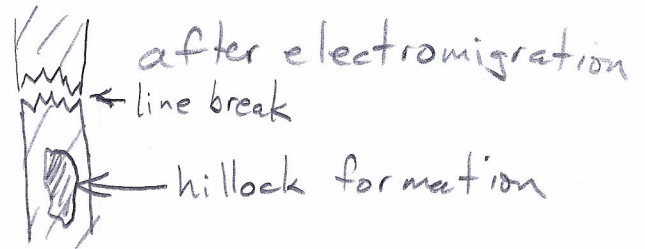 after electromigration
line break
hillock formation